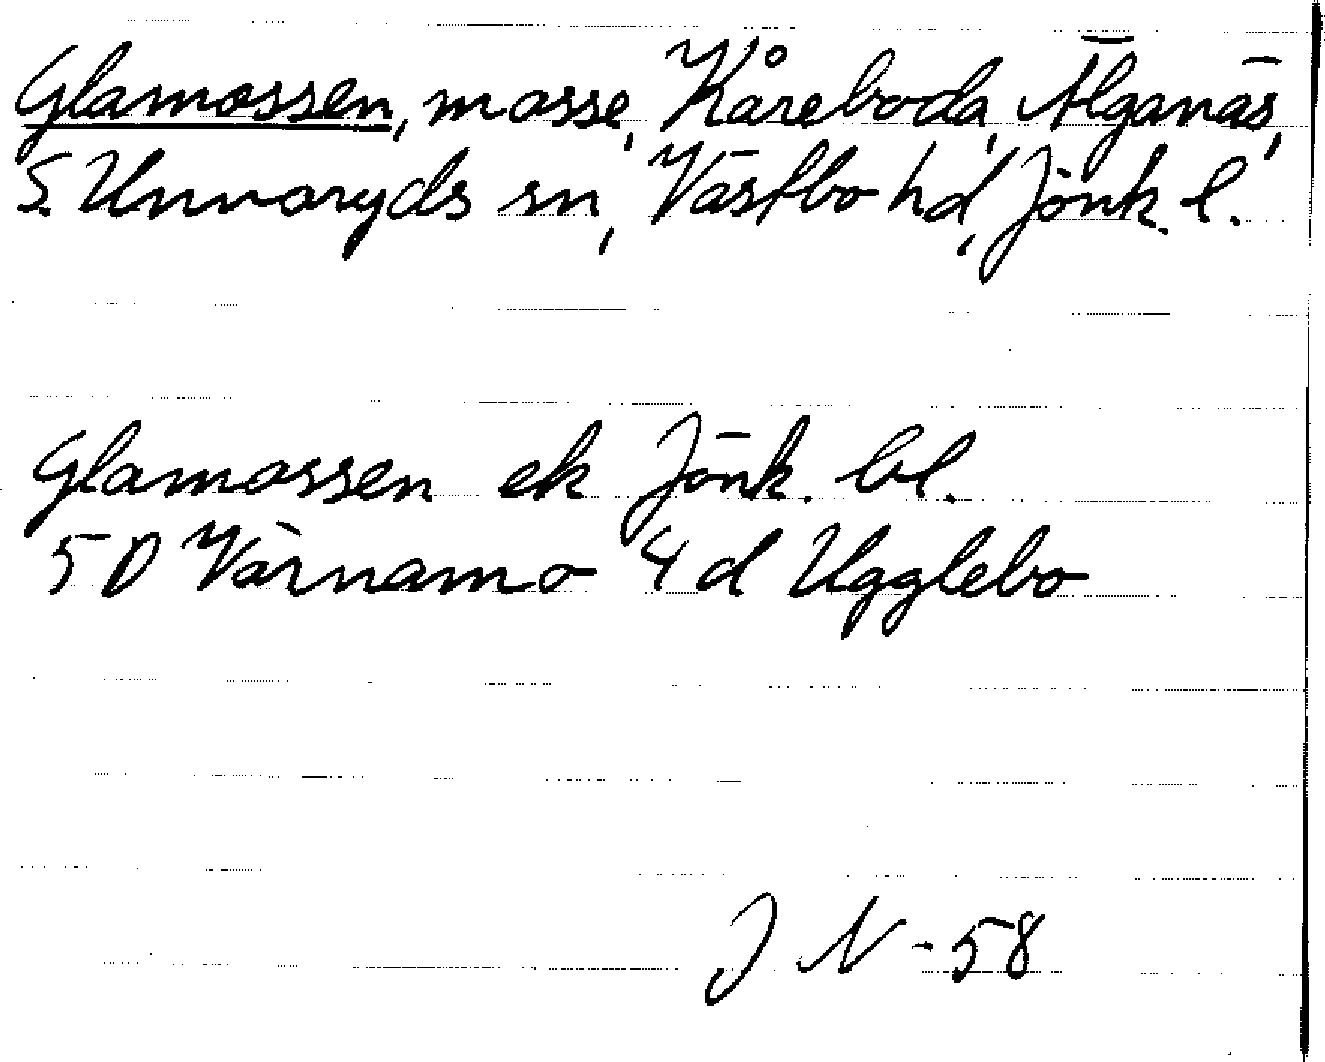 Glamossen, mosse, Kåreboda, Älganäs,
S. Unnaryds sn, Västbo hd, Jönk. l.
Glamossen ek Jönk. bl.
5D Värnamo 4 d Ugglebo
J N - 58